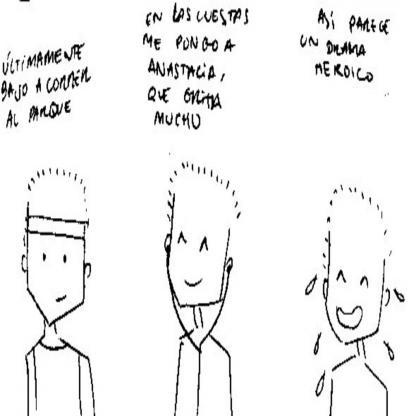 ÚLTIMAMENTE
BAJO A CORRER
AL PARQUE
EN LAS CUESTAS
ME PONGO A
ANASTACIA,
QUE GRITA
MUCHO
ASÍ PARECE
UN DRAMA
HEROICO